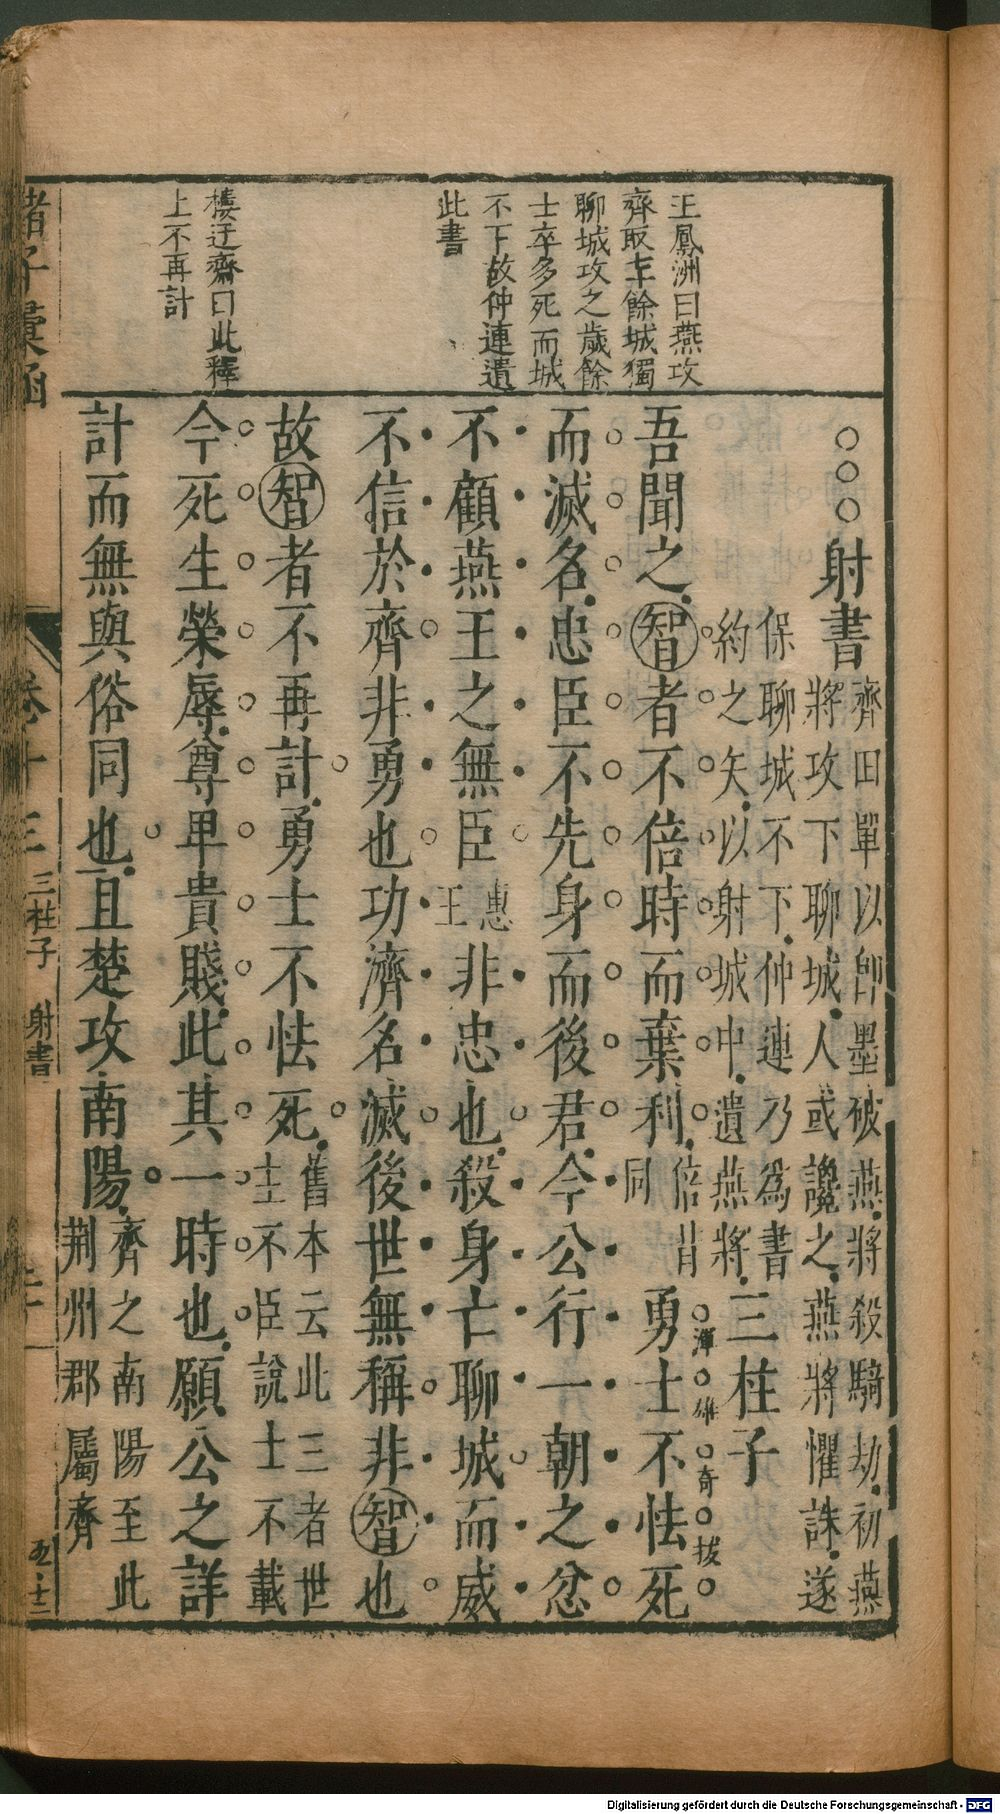 王鳳洲曰燕攻
齊取七十餘城獨
聊城攻之歲餘
士卒多死而城
不下故仲連遺
此書
樓迂齋曰此釋
上不再計
○○○射書
齊田單以卽墨破燕將殺騎劫初燕
將攻下聊城人或讒之燕將懼誅遂
保聊城不下仲連乃爲書
約之矢以射城中遺燕將
三柱子
吾聞之智者不倍時而棄利
倍背
同
勇士不怯死
渾雄奇拔
而滅名忠臣不先身而後君今公行一朝之忿
不顧燕王之無臣
惠
王
非忠也殺身亡聊城而威
不信於齊非勇也功濟名滅後世無稱非智也
故智者不再計勇士不怯死
舊本云此三者世
主不臣說士不載
今死生榮辱尊卑貴賤此其一時也願公之詳
計而無與俗同也且楚攻南陽
齊之南陽至此
荆州郡屬齊
諸子彙函
卷十三
三柱子 射書
五十二
Digitalisierung gefördert durch die Deutsche Forschungsgemeinschaft - DFG